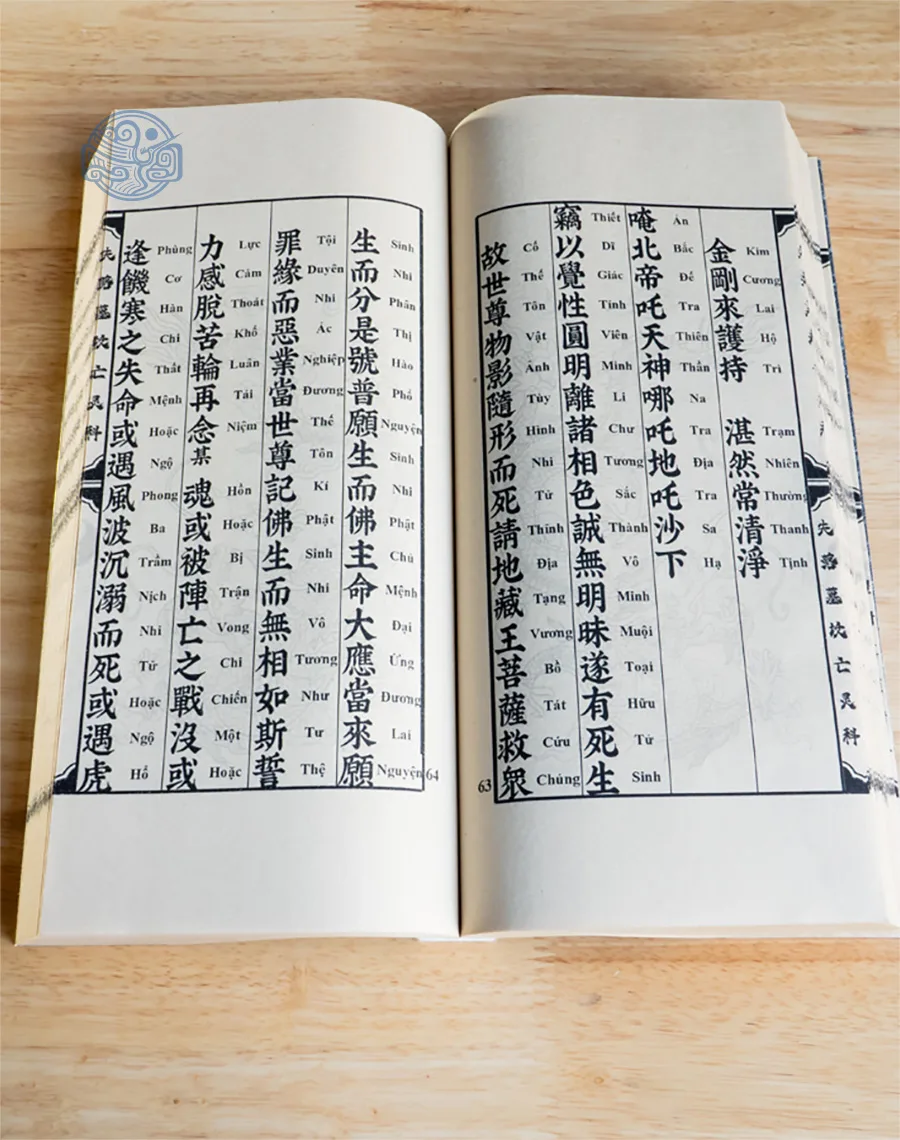 金剛來護持 湛然常清淨
Kim Cương Lai Hộ Trì Trạm Nhiên Thường Thanh Tịnh
唵北帝吒天神哪吒地吒沙下
Án Bắc Đế Tra Thiên Thần Na Tra Địa Tra Sa Hạ
竊以覺性圓明離諸相色誠無明昧遂有死生
Thiết Dĩ Giác Tính Viên Minh Li Chư Tương Sắc Thành Vô Minh Muội Toại Hữu Tử Sinh
故世尊物影隨形而死請地藏王菩薩救眾
Cố Thế Tôn Vật Ảnh Tùy Hình Nhi Tử Thỉnh Địa Tạng Vương Bồ Tát Cứu Chúng
63
生而分是號普願生而佛主命大應當來願
Sinh Nhi Phân Thị Hào Phổ Nguyện Sinh Nhi Phật Chủ Mệnh Đại Ứng Đương Lai Nguyện
64
罪緣而惡業當世尊記佛生而無相如斯誓
Tội Duyên Nhi Ác Nghiệp Đương Thế Tôn Kí Phật Sinh Nhi Vô Tương Như Tư Thệ
力感脫苦輪再念某 魂或被陣亡之戰沒或
Lực Cảm Thoát Khổ Luân Tái Niệm Hồn Hoặc Bị Trận Vong Chi Chiến Một Hoặc
逢饑寒之失命或遇風波沉溺而死或遇虎
Phùng Cơ Hàn Chi Thất Mệnh Hoặc Ngộ Phong Ba Trầm Nịch Nhi Tử Hoặc Ngộ Hổ